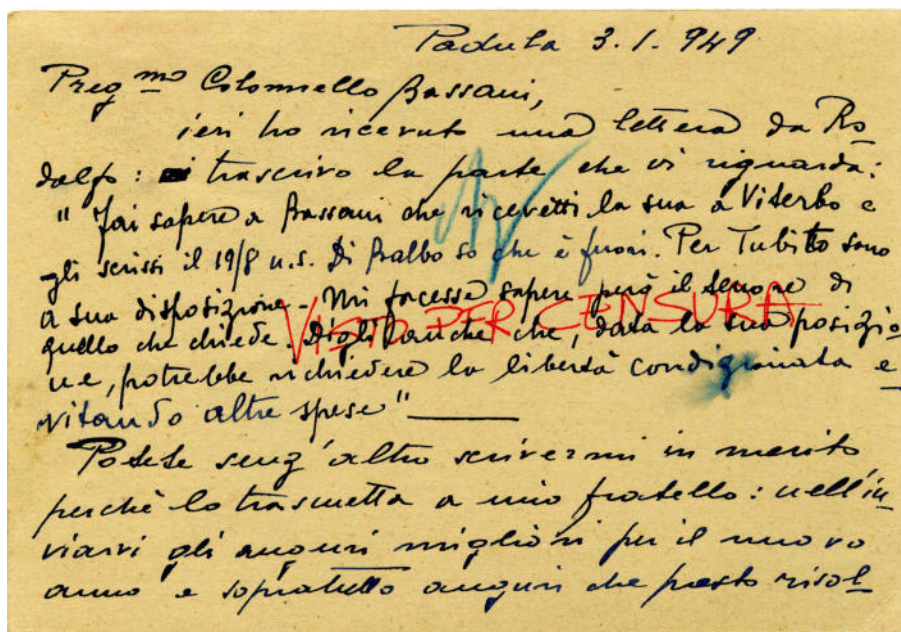 Padula 3.1.949
Preg.mo Colonnello Bassani,
ieri ho ricevuto una lettera da Ro-
dolfo: trascrivo la parte che vi riguarda:
"Fai sapere a Bassani che ricevetti la sua a Viterbo e
gli scrissi il 19/8 u.s. Di Balbo so che è fuori. Per Tubito sono
a sua disposizione - Mi facesse sapere però il tenore di
quello che chiede. Digli anche che, data la sua posizio-
VISTO PER CENSURA
ne, potrebbe richiedere la libertà condizionata e-
vitando altre spese"
Potete senz'altro scrivermi in merito
perchè lo trasmetta a mio fratello: nell'in-
viarvi gli auguri migliori per il nuovo
anno e sopratutto auguri che presto risol-